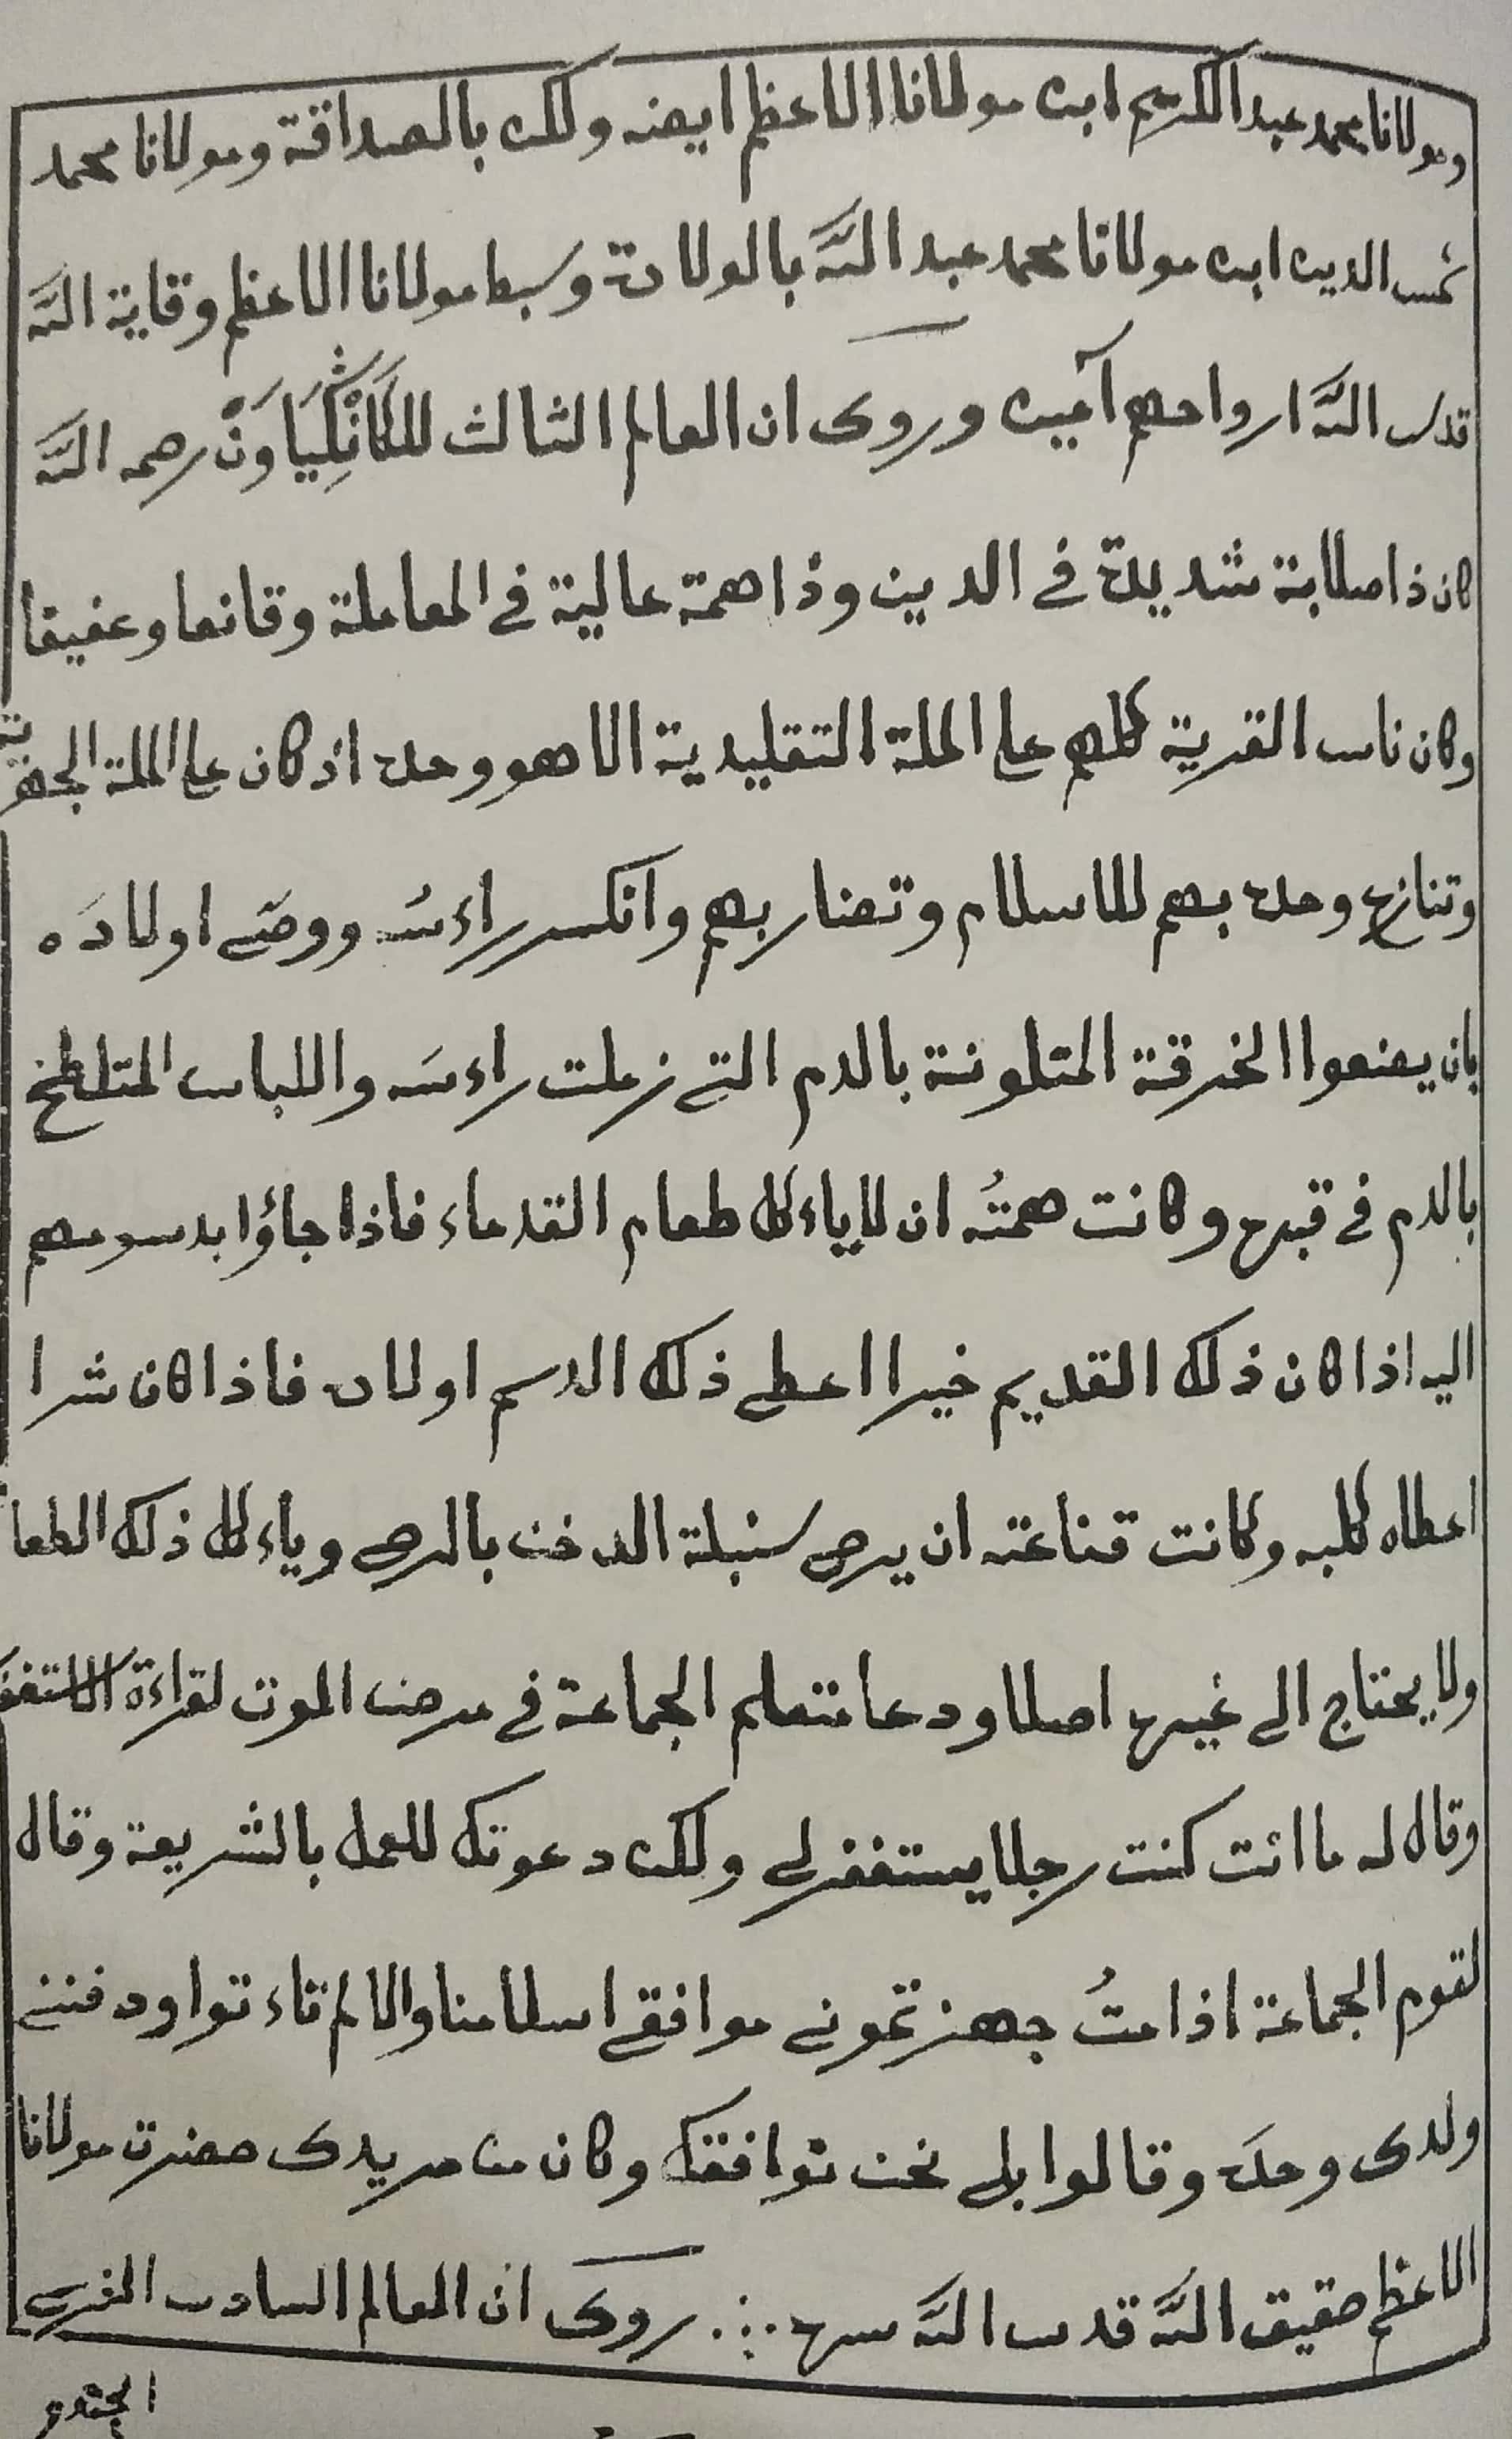 ومولانا محمد عبد الكريم ابن مولانا الاعظم ايضه ولكن بالصداقة ومولانا محمد
شمس الدين ابن مولانا محمد عبد اللَّه بالولادة وسبط مولانا الاعظم وقاية اللَّه
قدس اللَّه ارواحهم آمين وروى ان العالم الثالث رحمه اللَّه
كان ذا صلابة شديدة في الدين وذا همة عالية في المعاملة وقانعا وعفيفا
وكان ناس القرية كلهم على الملة التقليدية الا هو وحده اذ كان على الملة
وتنازع وحده بهم للاسلام وتضاربهم وانكسر راءسُه ووصّى اولادَه
بان يضعوا الخرقة المتلونة بالدم التي زملت راءسَه واللباس المتلطخ
بالدم في قبره وكانت همتُه ان لا ياءكل طعام القدماء فاذا جاؤا بدسومهم
اليه اذا كان ذلك القديم خيرا اعطى ذلك الدسم اولاده فاذا كان شرا
اعطاه كلبه وكانت قناعته ان يرحى سنبلة الدخن بالرحى وياءكل ذلك الطعا
ولا يحتاج الى غيره اصلا ودعا متعلم الجماعة في مرض الموت لقراءة
وقال له ما انت كنت رجلا يستغفر لي ولكن دعوتك للعمل بالشريعة وقال
لقوم الجماعة اذا متُ جهزتموني موافقي اسلامنا والا لم تاءتوا ودفنني
ولدى وحدَه وقالوا بلى نحن نوافقك وكان من مريدى حضرت مولانا
الاعظم حقيق اللَّه قدس اللَّه سره ∴ روى ان العالم السادس